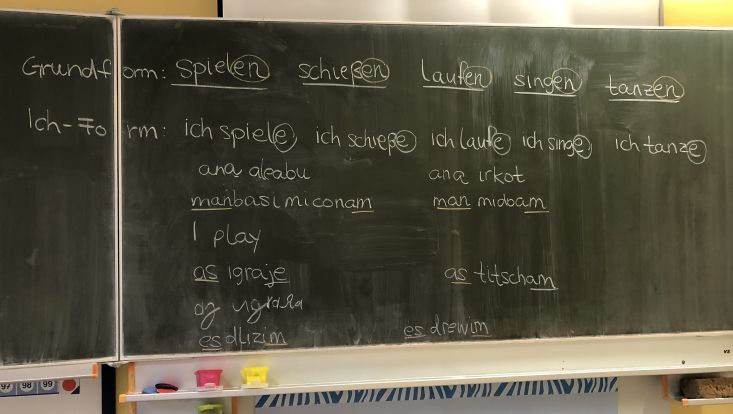 Grundform: spielen schießen laufen singen tanzen
Ich-Form: ich spiele ich schieße ich laufe ich singe ich tanze
ana aleabu ana irkot
manbasi miconam man midoam
I play
as igraje as titscham
es dlizim es drewim
97 98 99